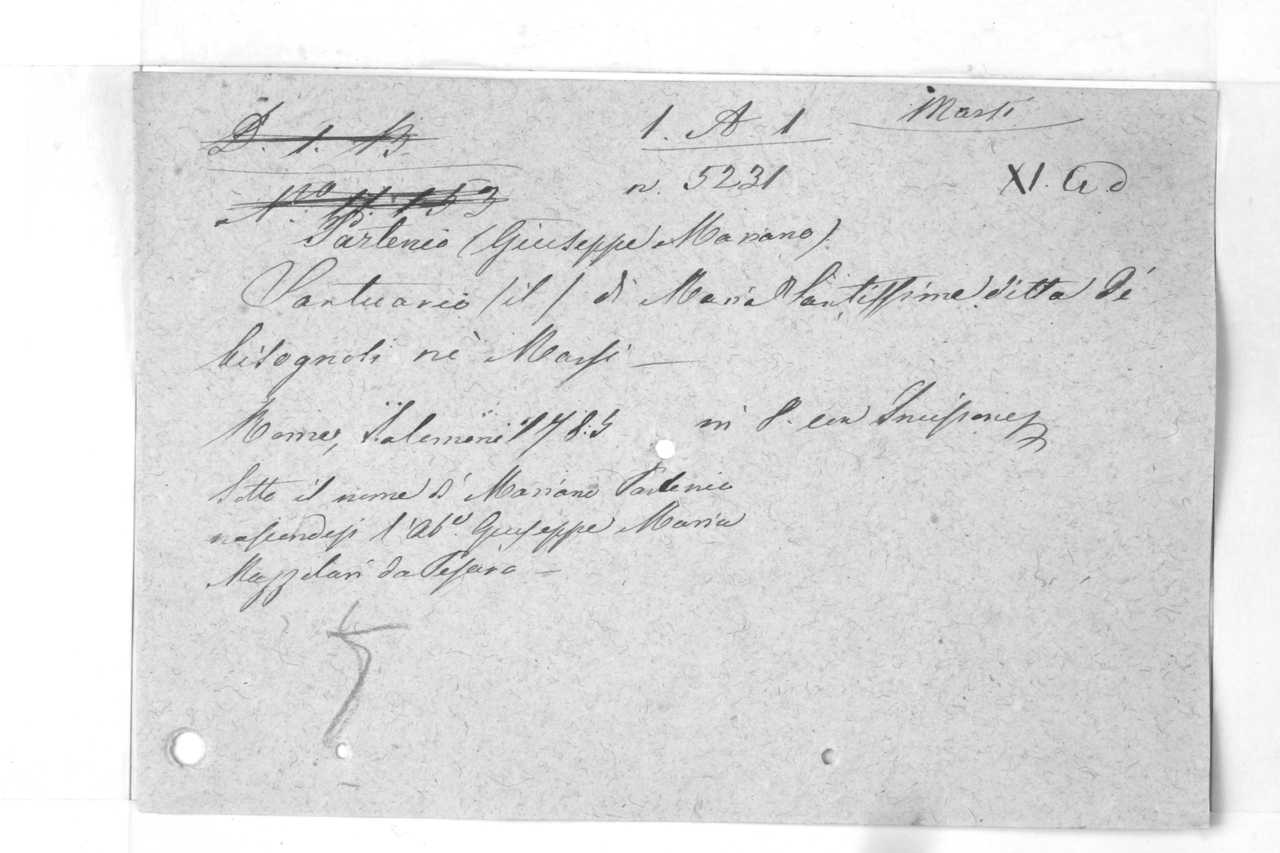 D. 1. B 1. A 1 Marsi
N.ro 11.153 n. 5231 XI. G d
Partenio (Giuseppe Mariano)
Santuario (il) di Maria Santissima ditta de'
bisognosi ne' Marsi —
Roma, Salomoni 1785 in 8. con Incisione
Sotto il nome di Mariano Partenio
nascondesi l'Ab.e Giuseppe Maria
Mazzolari da Pesaro —